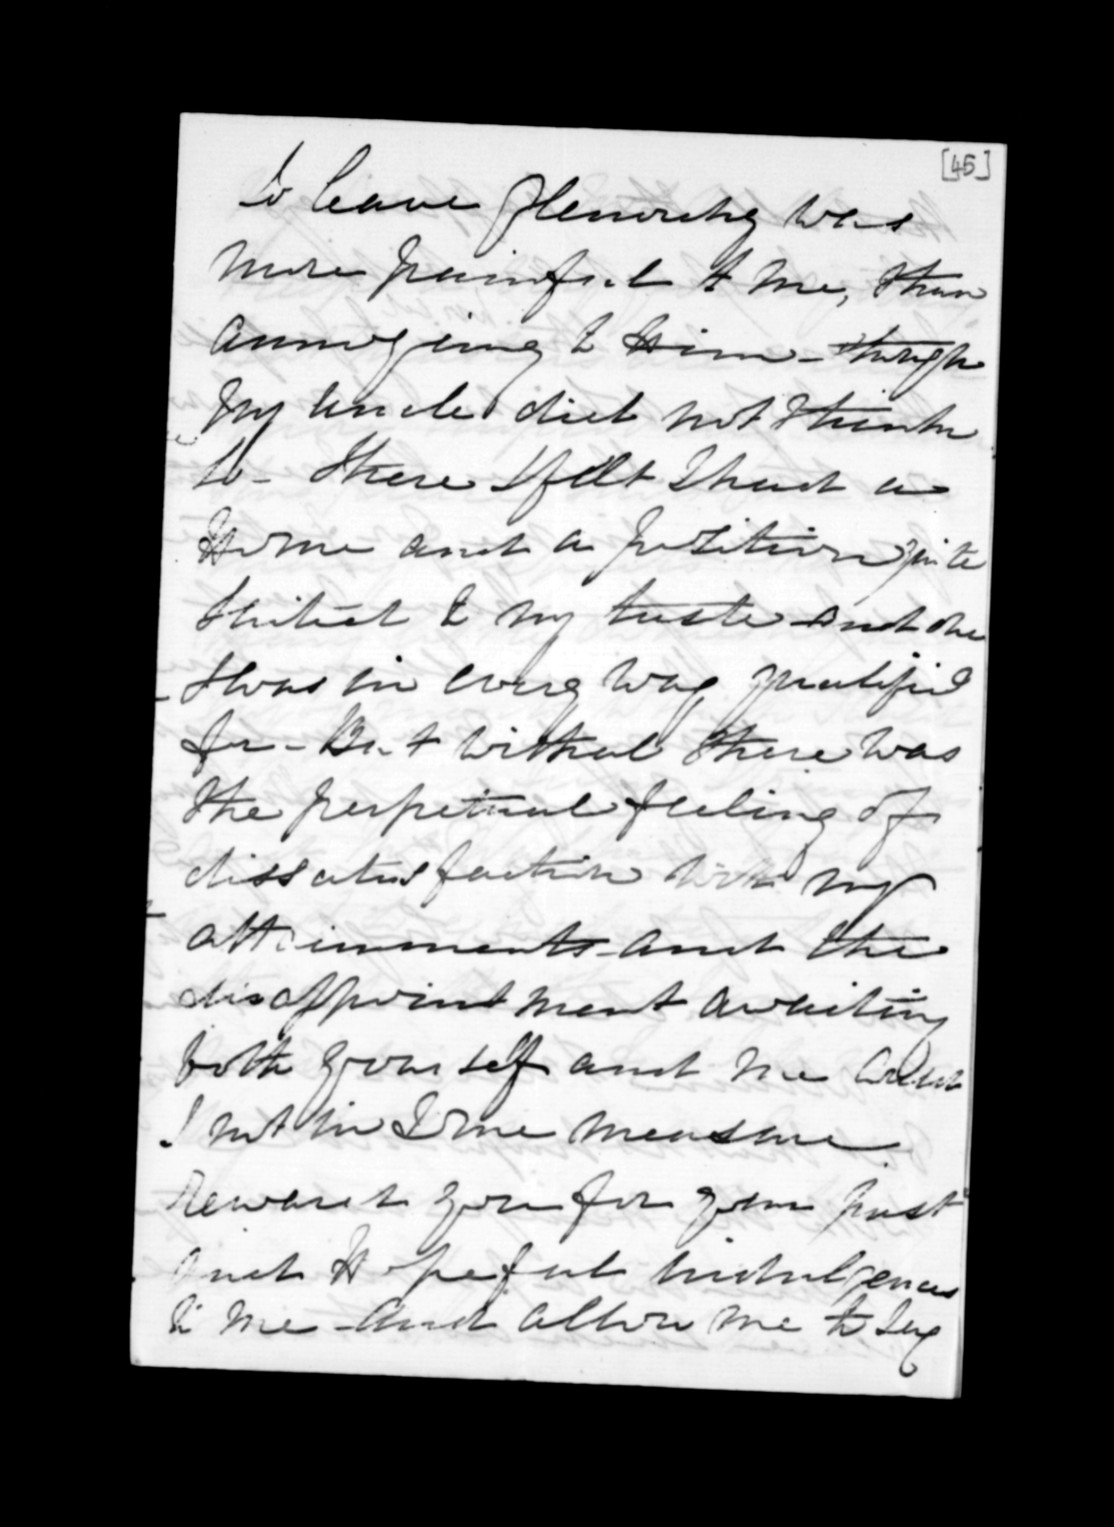 [45]
to leave Glenorchy was
more painful to me, than
annoying to Him - though
my uncle did not think
so - There I felt I had a
Home and a position quite
suited to my taste and one
I was in every way qualified
for - But withal there was
the perpetual feeling of
dissatisfaction with my
attainments - and the
disappointment awaiting
both yourself and me could
I not in some measure
reward you for your past
and Hopeful indulgences
to me - And allow me to say